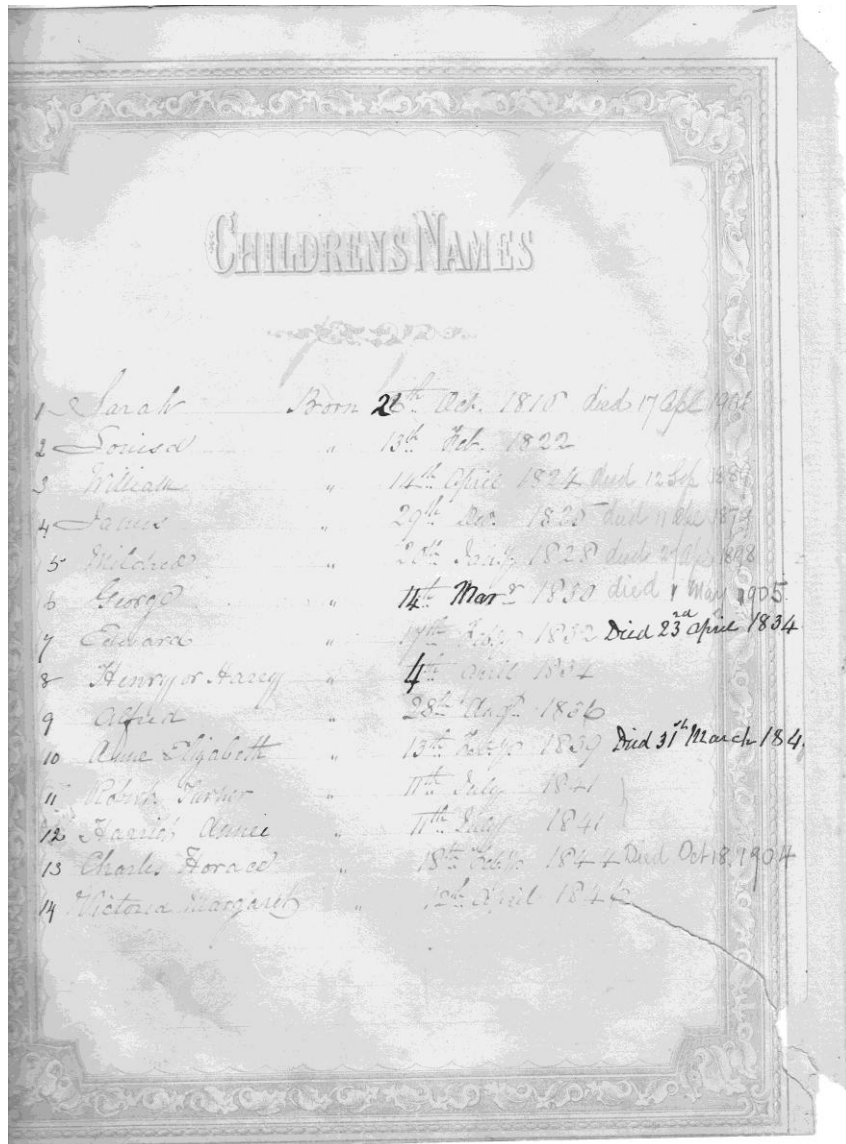 CHILDRENS NAMES
1 Sarah Born 26th Oct. 1810 died 17 Apl
2 Louisa " 13th Feb. 1822
3 William " 14th April 1824 died 12 Sep
4 James " 29th Dec. 1825 died 11 1879
5 Mildred " 20th Jany 1828 died 1898
6 George " 14th Mar 1830 died May 1905
7 Edward " 17th Feby 1832 Died 23rd April 1834
8 Henry or Harry " 4th April 1834
9 Alfred " 28th Augt 1836
10 Anne Elizabeth " 13th Feby 1839 Died 31st March 184
11 Robert Turner " 11th July 1841
12 Harriet Annie " 11th July 1841
13 Charles Horace " 18th Feby 1844 Died Oct 18, 1904
14 Victoria Margaret " 12th April 1846